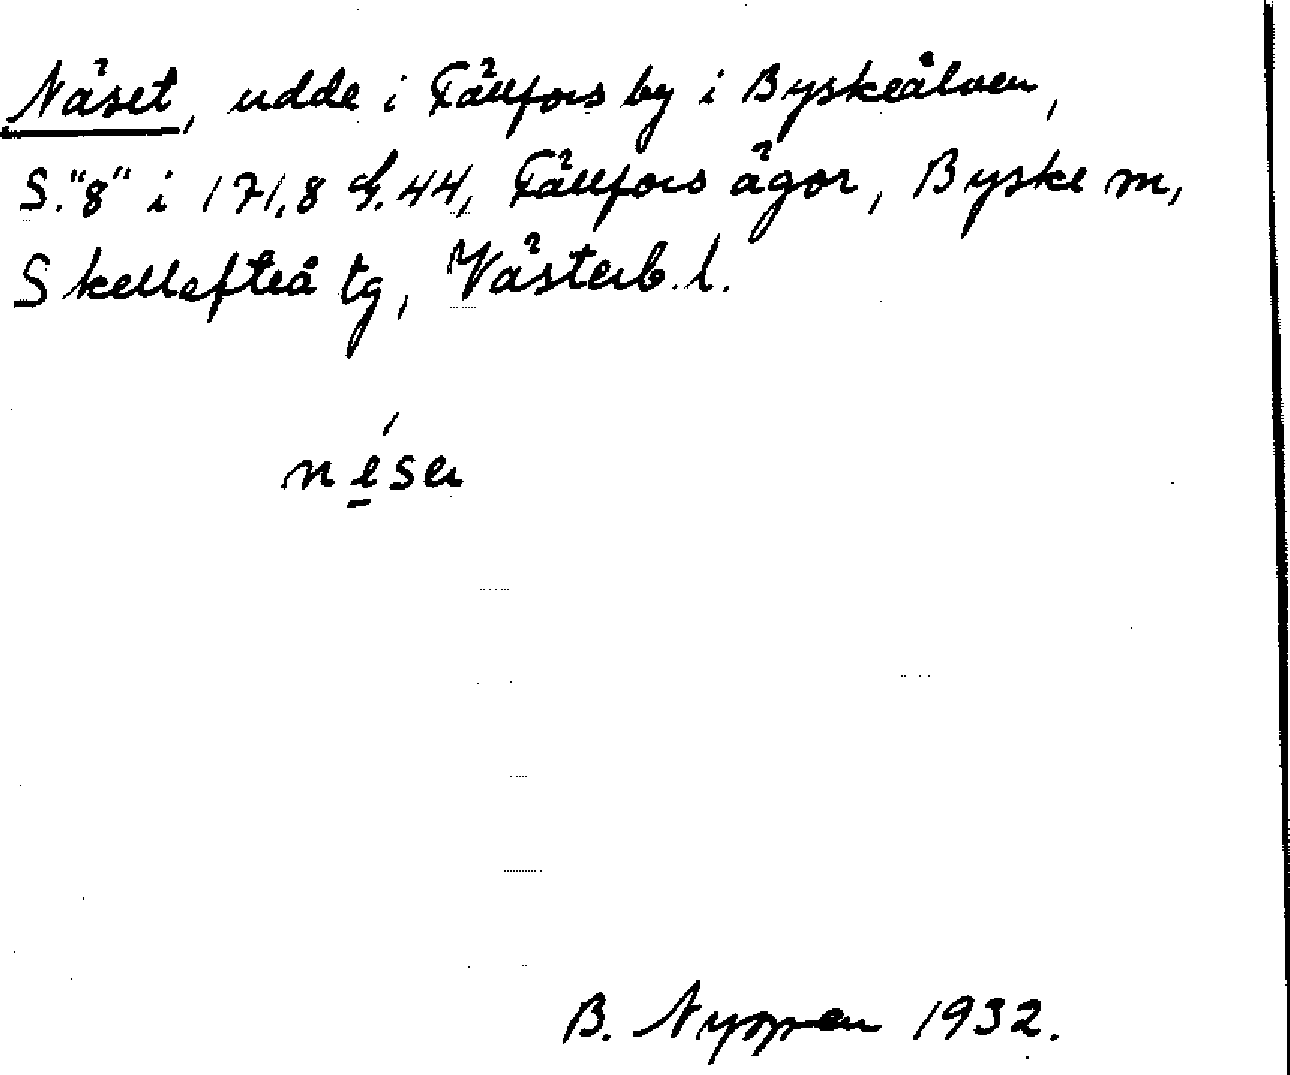 Näset, udde i Fällfors by i Byskeälven,
S. "8" i 171,8 G.44, Fällfors ägor, Byske m,
Skellefteå tg, Västerb. l.
néser
B. Nyman 1932.